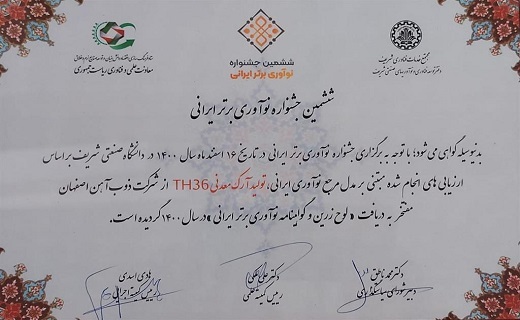 مجتمع خدمات فناوری شریف
ششمین جشنواره
نوآوری برتر ایرانی
معاونت علمی و فناوری ریاست جمهوری
ششمین جشنواره نوآوری برتر ایرانی
بدینوسیله گواهی می‌شود؛ با توجه به برگزاری جشنواره نوآوری برتر ایرانی در تاریخ ۱۶ اسفند ماه سال ۱۴۰۰ در دانشگاه صنعتی شریف بر اساس
ارزیابی های انجام شده مبتنی بر مدل مرجع نوآوری ایرانی، تولید آرک معدنی TH36 از شرکت ذوب آهن اصفهان
مفتخر به دریافت «لوح زرین و گواهینامه نوآوری برتر ایرانی» در سال ۱۴۰۰ گردیده است.
دکتر محمد ناطق
دبیر شورای سیاستگذاری
دکتر علی
رییس کمیته علمی
هادی اسدی
رییس کمیته اجرایی